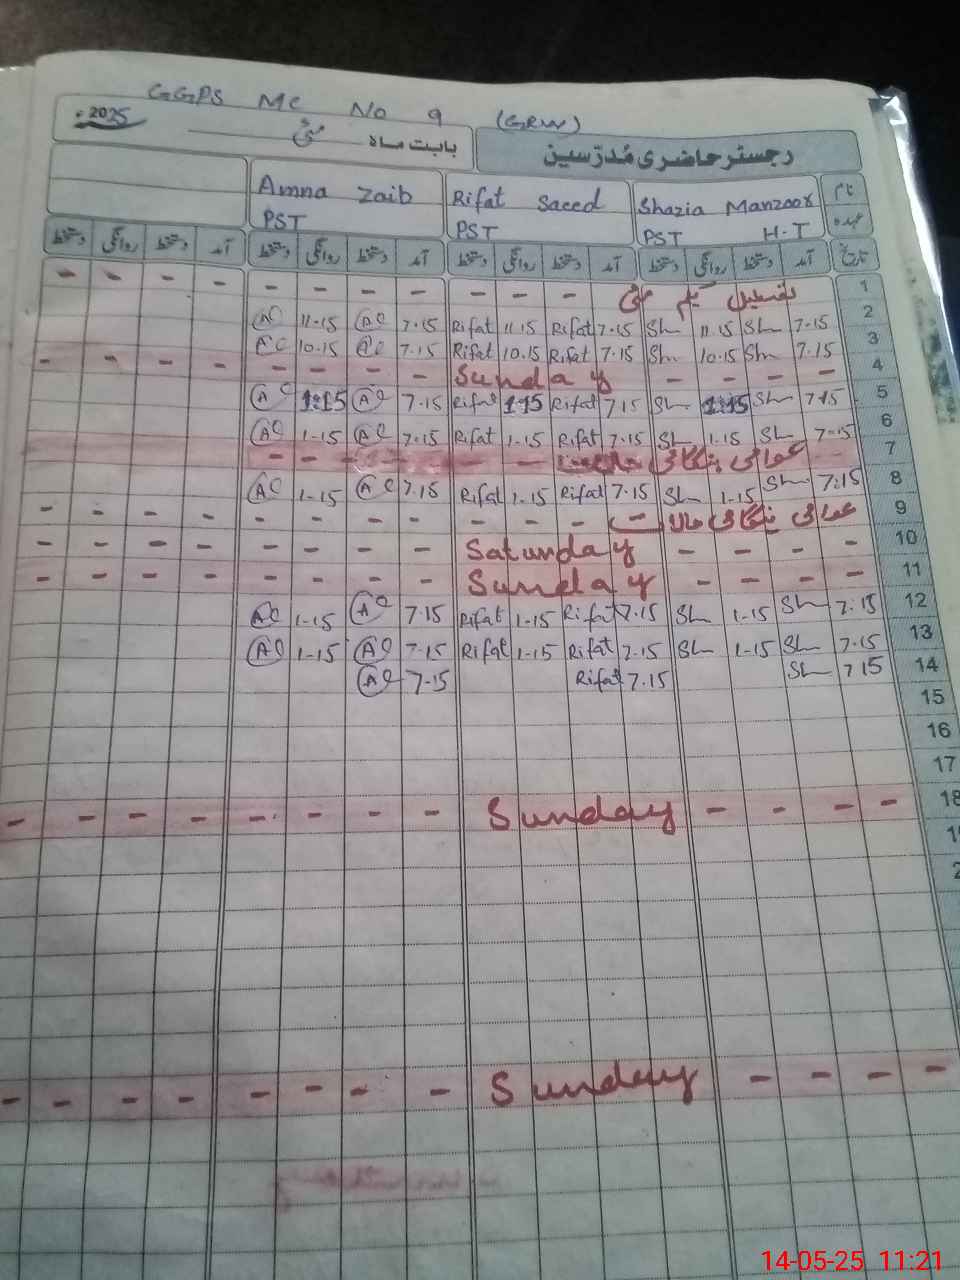 GGPS MC No 9 (GRW)
رجسٹر حاضری مُدرّسین بابت ماہ مئی 2025ء
نام Shazia Manzoor Rifat Saeed Amna Zaib
عہدہ PST H.T PST PST
تاریخ آمد دستخط روانگی دستخط آمد دستخط روانگی دستخط آمد دستخط روانگی دستخط آمد دستخط روانگی دستخط
1 تعطیل یکم مئی - - - - - - - - - - -
2 7-15 Sh 11.15 Sh 7-15 Rifat 11.15 Rifat 7.15 AC 11-15 AC
3 7-15 Sh 10-15 Sh 7-15 Rifat 10.15 Rifat 7.15 AC 10.15 AC
4 - - - - Sunday - - - - - - -
5 7-15 Sh 1:15 Sh 7.15 Rifat 1:15 Rifat 7.15 AC 1:15 AC
6 7-15 Sh 1.15 Sh 7-15 Rifat 1.15 Rifat 7-15 AC 1-15 AC
7 عوامی ہنگامی حالت - - - - - -
8 7:15 Sh 1.15 Sh 7.15 Rifat 1-15 Rifat 7.15 AC 1-15 AC
9 عوامی ہنگامی حالت - - - - - - - - - - -
10 - - - - Saturday - - - - - - - -
11 - - - - Sunday - - - - - - - -
12 7:15 Sh 1-15 Sh 7.15 Rifat 1-15 Rifat 7.15 AC 1-15 AC
13 7.15 Sh 1-15 Sh 7.15 Rifat 1-15 Rifat 7-15 AC 1-15 AC
14 7 15 Sh 7.15 Rifat 7-15 AC
15
16
17
18 - - - - Sunday - - - - - - - -
- - - - Sunday - - - - - - - -
14-05-25 11:21